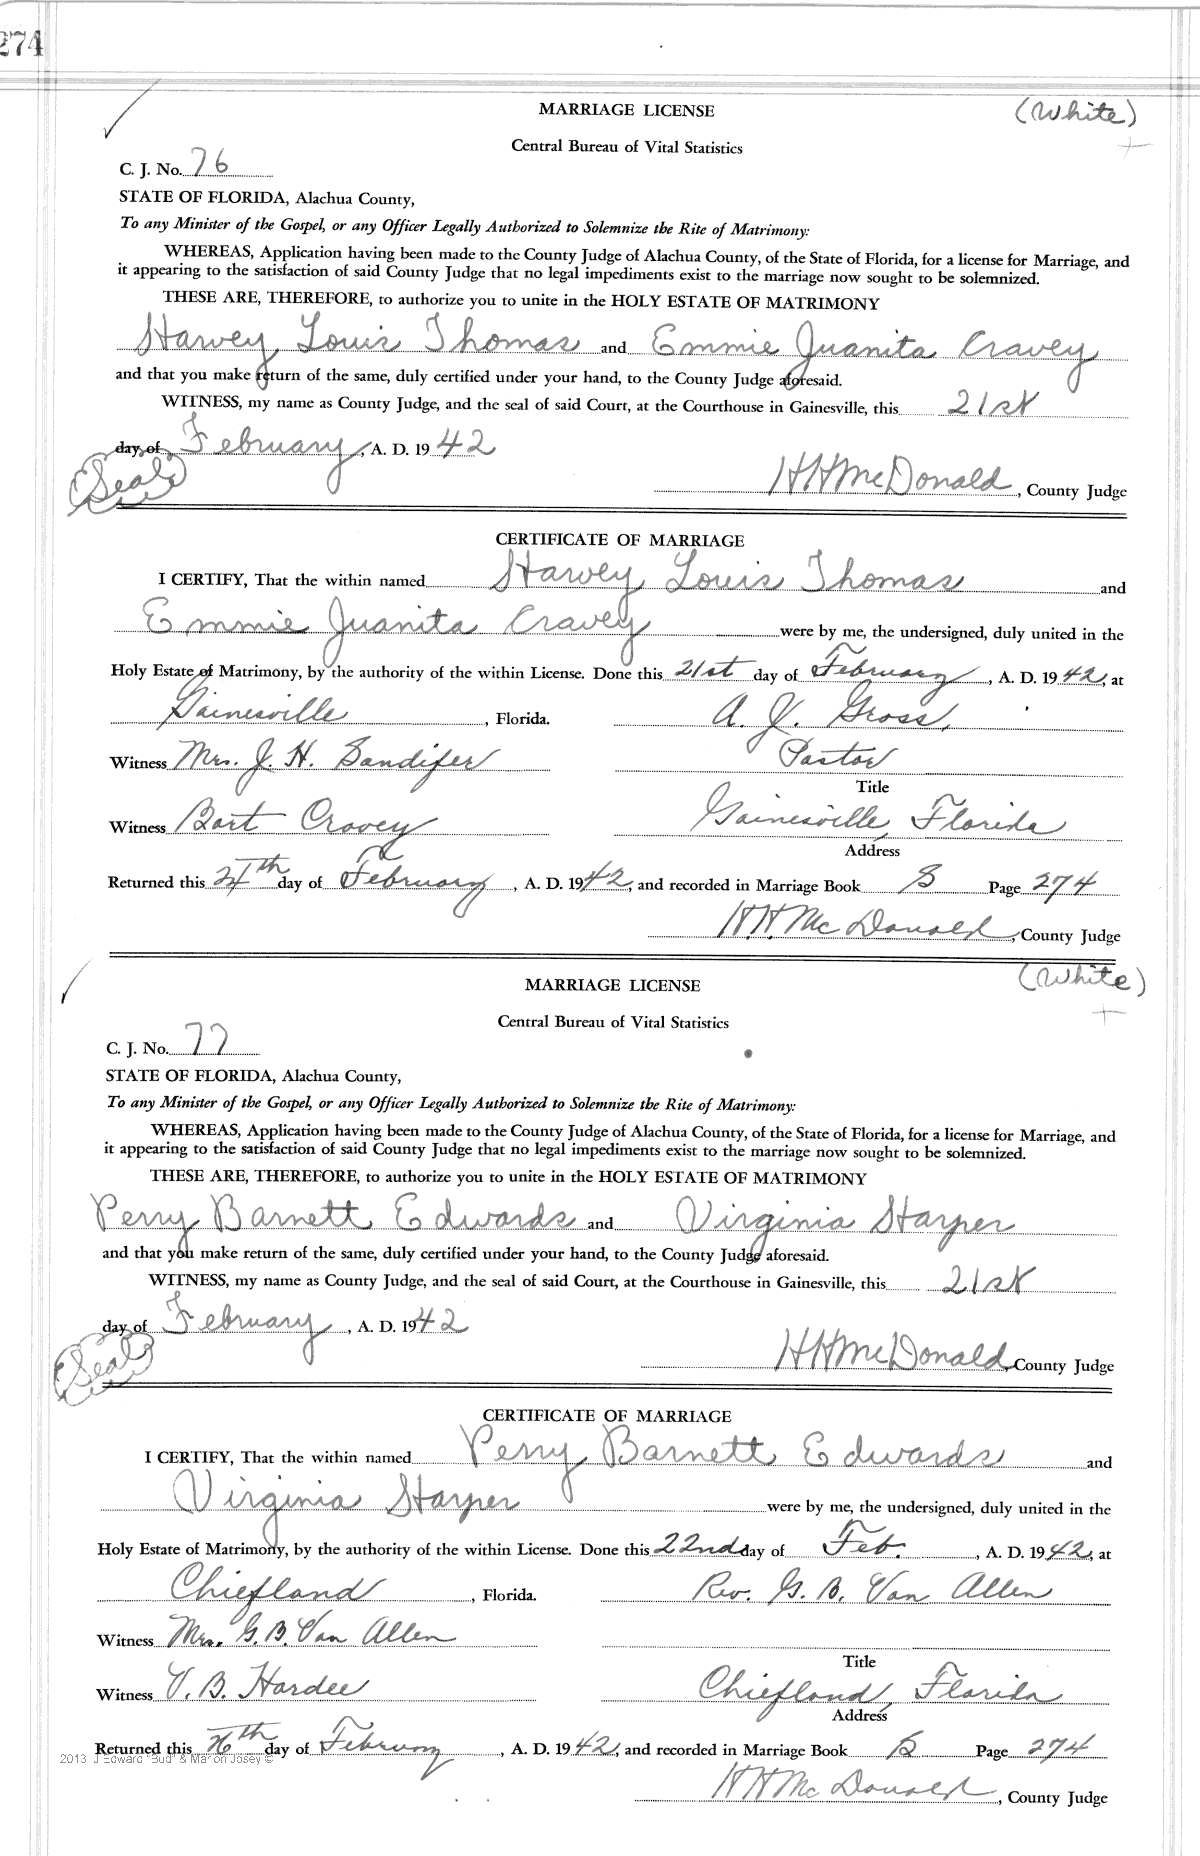 274
MARRIAGE LICENSE
(White)
Central Bureau of Vital Statistics
C. J. No. 76
STATE OF FLORIDA, Alachua County,
To any Minister of the Gospel, or any Officer Legally Authorized to Solemnize the Rite of Matrimony:
WHEREAS, Application having been made to the County Judge of Alachua County, of the State of Florida, for a license for Marriage, and
it appearing to the satisfaction of said County Judge that no legal impediments exist to the marriage now sought to be solemnized.
THESE ARE, THEREFORE, to authorize you to unite in the HOLY ESTATE OF MATRIMONY
Harvey Louis Thomas and Emmie Juanita Cravey
and that you make return of the same, duly certified under your hand, to the County Judge aforesaid.
WITNESS, my name as County Judge, and the seal of said Court, at the Courthouse in Gainesville, this 21st
day of February, A. D. 1942
(Seal)
H H McDonald, County Judge
CERTIFICATE OF MARRIAGE
I CERTIFY, That the within named Harvey Louis Thomas and
Emmie Juanita Cravey were by me, the undersigned, duly united in the
Holy Estate of Matrimony, by the authority of the within License. Done this 21st day of February, A. D. 1942, at
Gainesville, Florida. A. J. Gross,
Witness Mrs. J. H. Sandifer Pastor
Title
Witness Bart Cravey Gainesville, Florida
Address
Returned this 24th day of February, A. D. 1942, and recorded in Marriage Book S Page 274
H. H. McDonald, County Judge
(White)
MARRIAGE LICENSE
Central Bureau of Vital Statistics
C. J. No. 77
STATE OF FLORIDA, Alachua County,
To any Minister of the Gospel, or any Officer Legally Authorized to Solemnize the Rite of Matrimony:
WHEREAS, Application having been made to the County Judge of Alachua County, of the State of Florida, for a license for Marriage, and
it appearing to the satisfaction of said County Judge that no legal impediments exist to the marriage now sought to be solemnized.
THESE ARE, THEREFORE, to authorize you to unite in the HOLY ESTATE OF MATRIMONY
Perry Barnett Edwards and Virginia Harper
and that you make return of the same, duly certified under your hand, to the County Judge aforesaid.
WITNESS, my name as County Judge, and the seal of said Court, at the Courthouse in Gainesville, this 21st
day of February, A. D. 1942
(Seal)
H H McDonald, County Judge
CERTIFICATE OF MARRIAGE
I CERTIFY, That the within named Perry Barnett Edwards and
Virginia Harper were by me, the undersigned, duly united in the
Holy Estate of Matrimony, by the authority of the within License. Done this 22nd day of Feb., A. D. 1942, at
Chiefland, Florida. Rev. G. B. Van Allen
Witness Mrs. G. B. Van Allen
Title
Witness V. B. Hardee Chiefland, Florida
Address
Returned this 26th day of February, A. D. 1942, and recorded in Marriage Book S Page 274
2013 J Edward "Bud" & Marion Josey ©
H H McDonald, County Judge